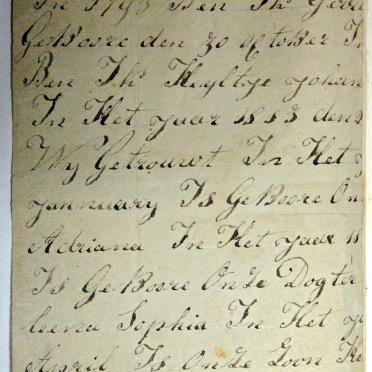 In 1793 Ben Ik Gerr
GeBoore den 30 October I
Ben Ik Heyltje Johan
In Het Jaar 1813 den
Wy Getrouwt In Het J
Jannuary Is GeBoore On
Adriana In Het Jaar 18
Is GeBoore Onze Dogter
leena Sophia In Het J
April Is Onze Zoon He